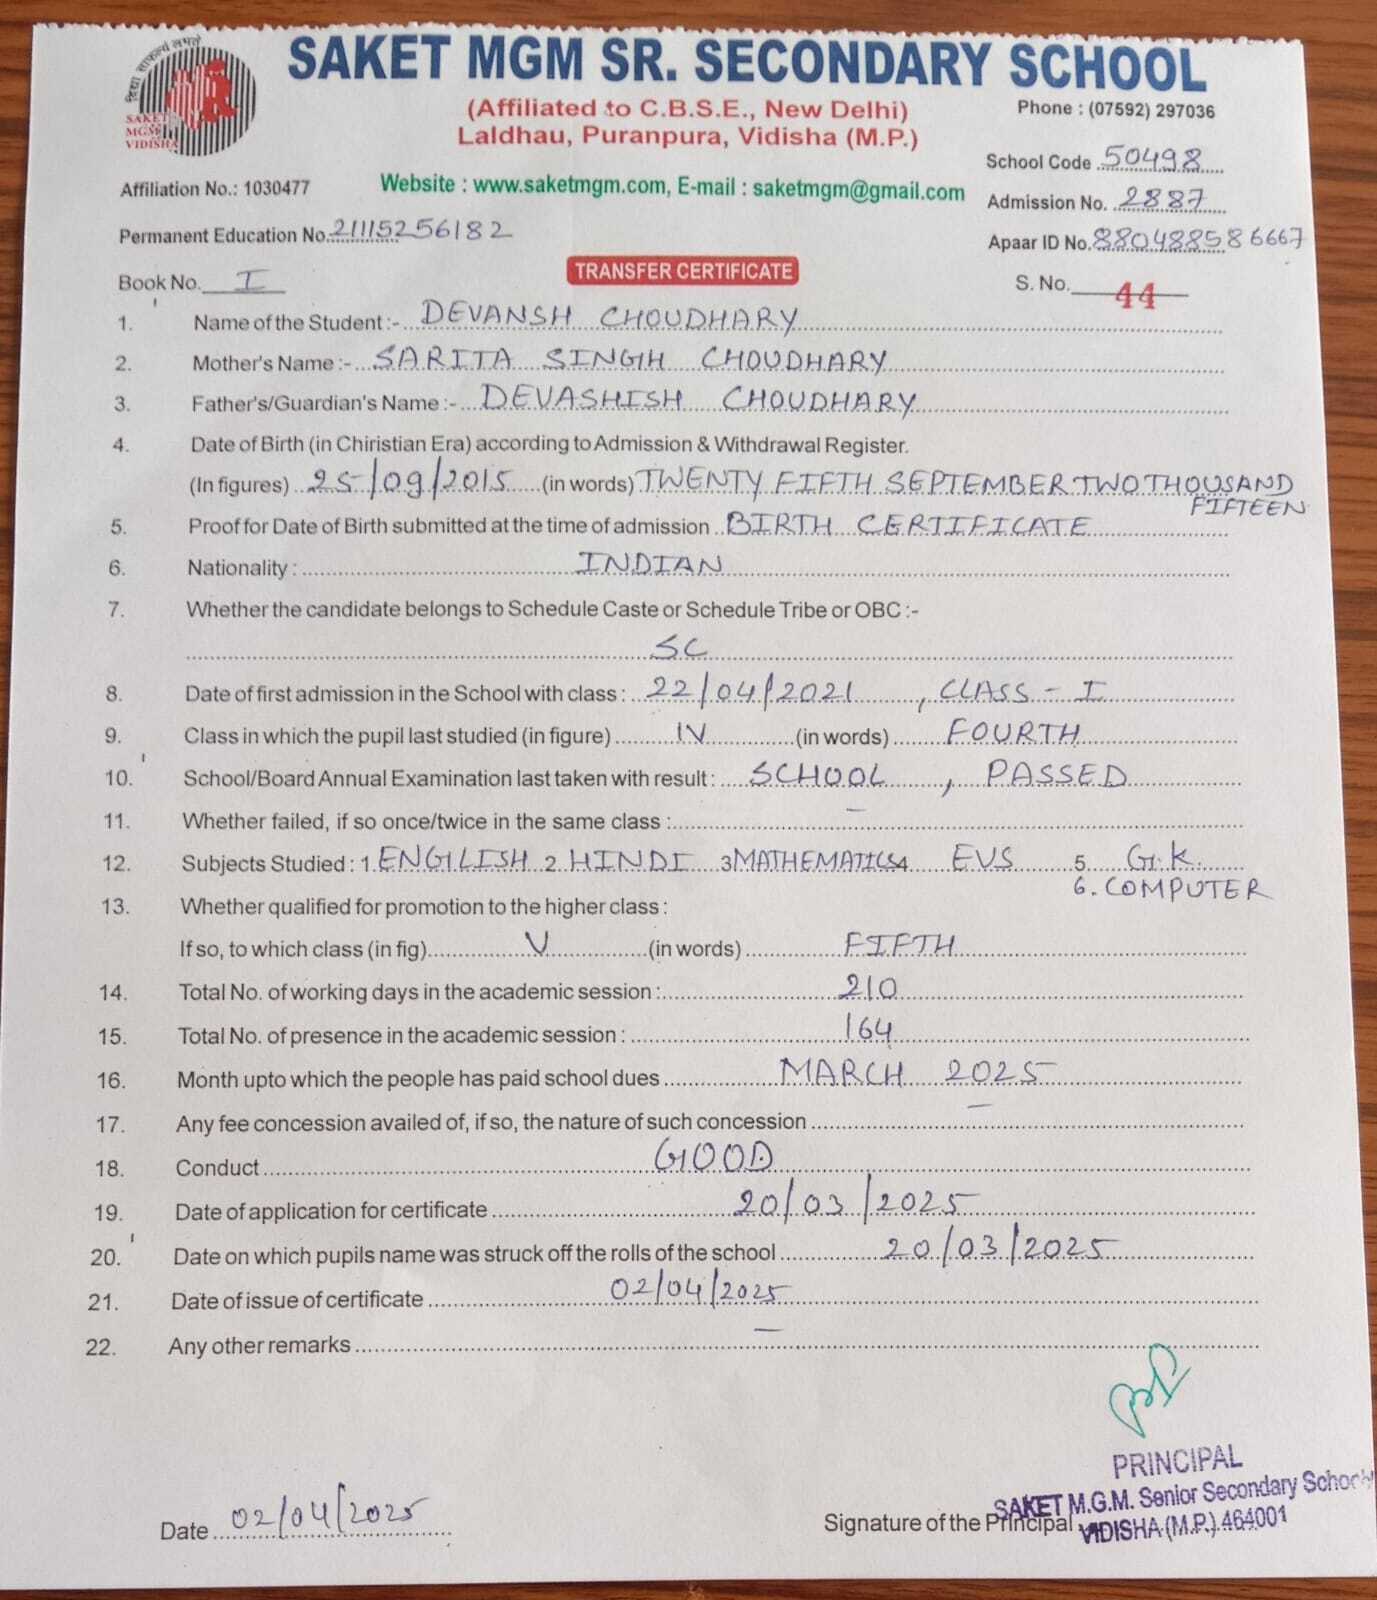 विद्या साफल्यं लभते
SAKET
MGM
VIDISHA
SAKET MGM SR. SECONDARY SCHOOL
(Affiliated to C.B.S.E., New Delhi)
Phone : (07592) 297036
Laldhau, Puranpura, Vidisha (M.P.)
School Code 50498
Affiliation No.: 1030477
Website : www.saketmgm.com, E-mail : saketmgm@gmail.com
Admission No. 2887
Permanent Education No. 21115256182
Apaar ID No. 880488586667
Book No. I
TRANSFER CERTIFICATE
S. No. 44
1. Name of the Student :- DEVANSH CHOUDHARY
2. Mother's Name :- SARITA SINGH CHOUDHARY
3. Father's/Guardian's Name :- DEVASHISH CHOUDHARY
4. Date of Birth (in Chiristian Era) according to Admission & Withdrawal Register.
(In figures) 25/09/2015 (in words) TWENTY FIFTH SEPTEMBER TWO THOUSAND
FIFTEEN
5. Proof for Date of Birth submitted at the time of admission BIRTH CERTIFICATE
6. Nationality : INDIAN
7. Whether the candidate belongs to Schedule Caste or Schedule Tribe or OBC :-
SC
8. Date of first admission in the School with class : 22/04/2021 , CLASS - I
9. Class in which the pupil last studied (in figure) IV (in words) FOURTH
10. School/Board Annual Examination last taken with result : SCHOOL , PASSED
11. Whether failed, if so once/twice in the same class : —
12. Subjects Studied : 1. ENGLISH 2. HINDI 3 MATHEMATICS 4 EVS 5. G.K.
6. COMPUTER
13. Whether qualified for promotion to the higher class :
If so, to which class (in fig) V (in words) FIFTH
14. Total No. of working days in the academic session : 210
15. Total No. of presence in the academic session : 164
16. Month upto which the people has paid school dues MARCH 2025
17. Any fee concession availed of, if so, the nature of such concession —
18. Conduct GOOD
19. Date of application for certificate 20/03/2025
20. Date on which pupils name was struck off the rolls of the school 20/03/2025
21. Date of issue of certificate 02/04/2025
22. Any other remarks —
PRINCIPAL
SAKET M.G.M. Senior Secondary School
VIDISHA (M.P.) 464001
Date 02/04/2025
Signature of the Principal